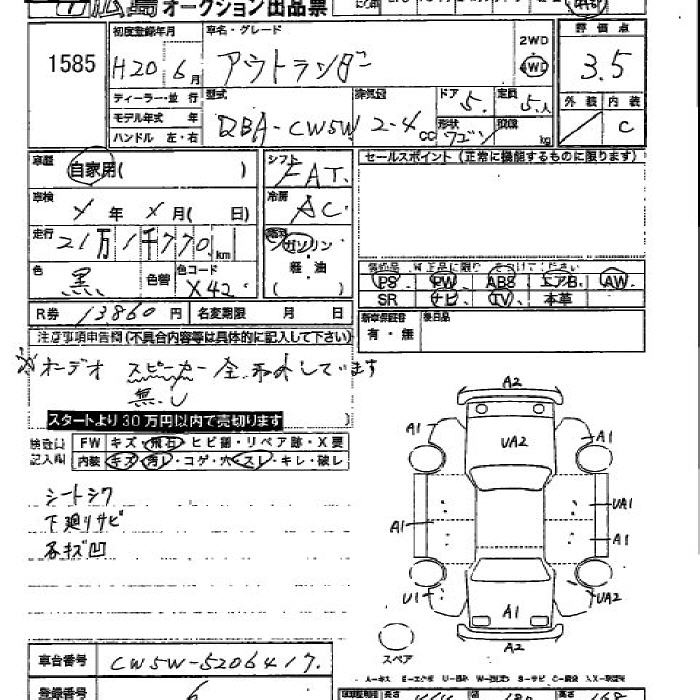 広島オークション出品票
1585
初度登録年月
H20 6月
車名・グレード
アウトランダー
2WD
4WD
評価点
3.5
外装 内装
C
ディーラー・並行
モデル年式 年
ハンドル 左・右
型式
DBA-CW5W
排気量
2-4 cc
ドア 5.
形状
ワゴン
定員 5人
積載 kg
車歴
自家用( )
車検
メ年 メ月( 日)
走行
21万1千770 km
色
黒
色替
色コード
X42
シフト
FAT
冷房
AC
燃料
ガソリン
軽・油
( )
R券 13,860 円 名変期限 月 日
セールスポイント(正常に機能するものに限ります)
PS PW ABS エアB AW
SR ナビ TV 本革
新車保証書
有・無
後日品
注意事項申告欄(不具合内容等は具体的に記入して下さい)
※オーデオ スピーカー 全 取外しています
無し
スタートより30万円以内で売切ります
検査員
記入欄
FW キズ・飛石・ヒビ割・リペア跡・X要
内装 キズ・汚レ・コゲ・穴・スレ・キレ・破レ
シートシワ
下廻りサビ
各キズ凹
A2
A1
UA2
A1
UA1
A1
A1
U1
A1
UA2
A2
スペア
車台番号 CW5W-5206417.
登録番号